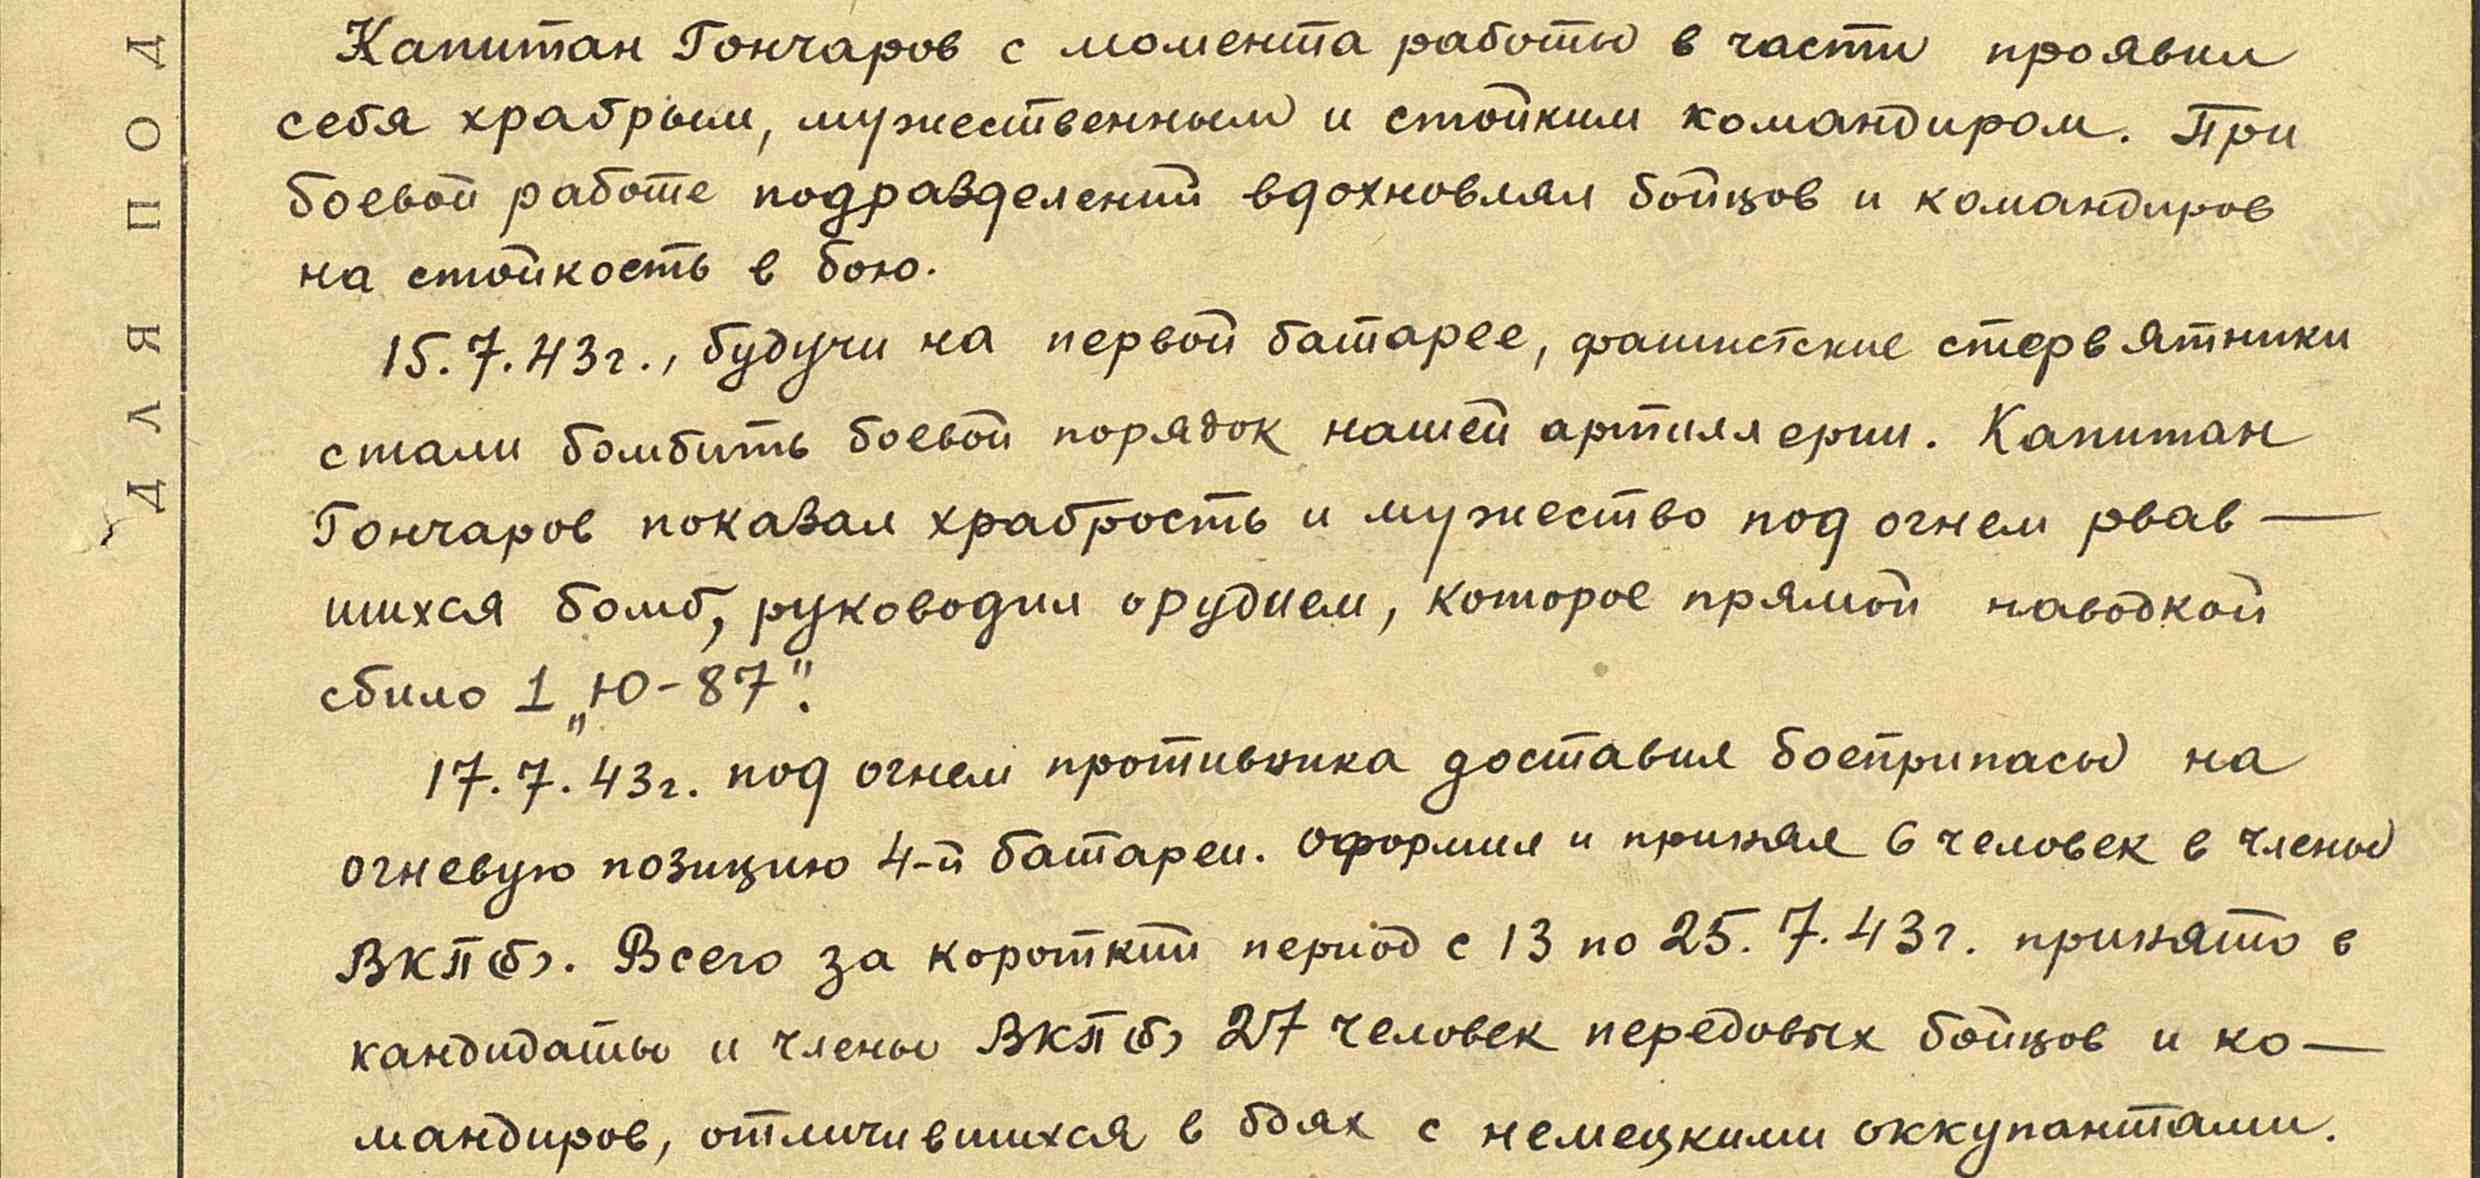 ДЛЯ ПОД
Капитан Гончаров с момента работы в части проявил
себя храбрым, мужественным и стойким командиром. При
боевой работе подразделений вдохновлял бойцов и командиров
на стойкость в бою.
15.7.43г., будучи на первой батарее, фашистские стервятники
стали бомбить боевой порядок нашей артиллерии. Капитан
Гончаров показал храбрость и мужество под огнем рвав-
шихся бомб, руководил орудием, которое прямой наводкой
сбило 1 „Ю-87".
17.7.43г. под огнем противника доставил боеприпасы на
огневую позицию 4-й батареи. Оформил и принял 6 человек в члены
ВКП(б). Всего за короткий период с 13 по 25.7.43г. принято в
кандидаты и члены ВКП(б) 27 человек передовых бойцов и ко-
мандиров, отличившихся в боях с немецкими оккупантами.